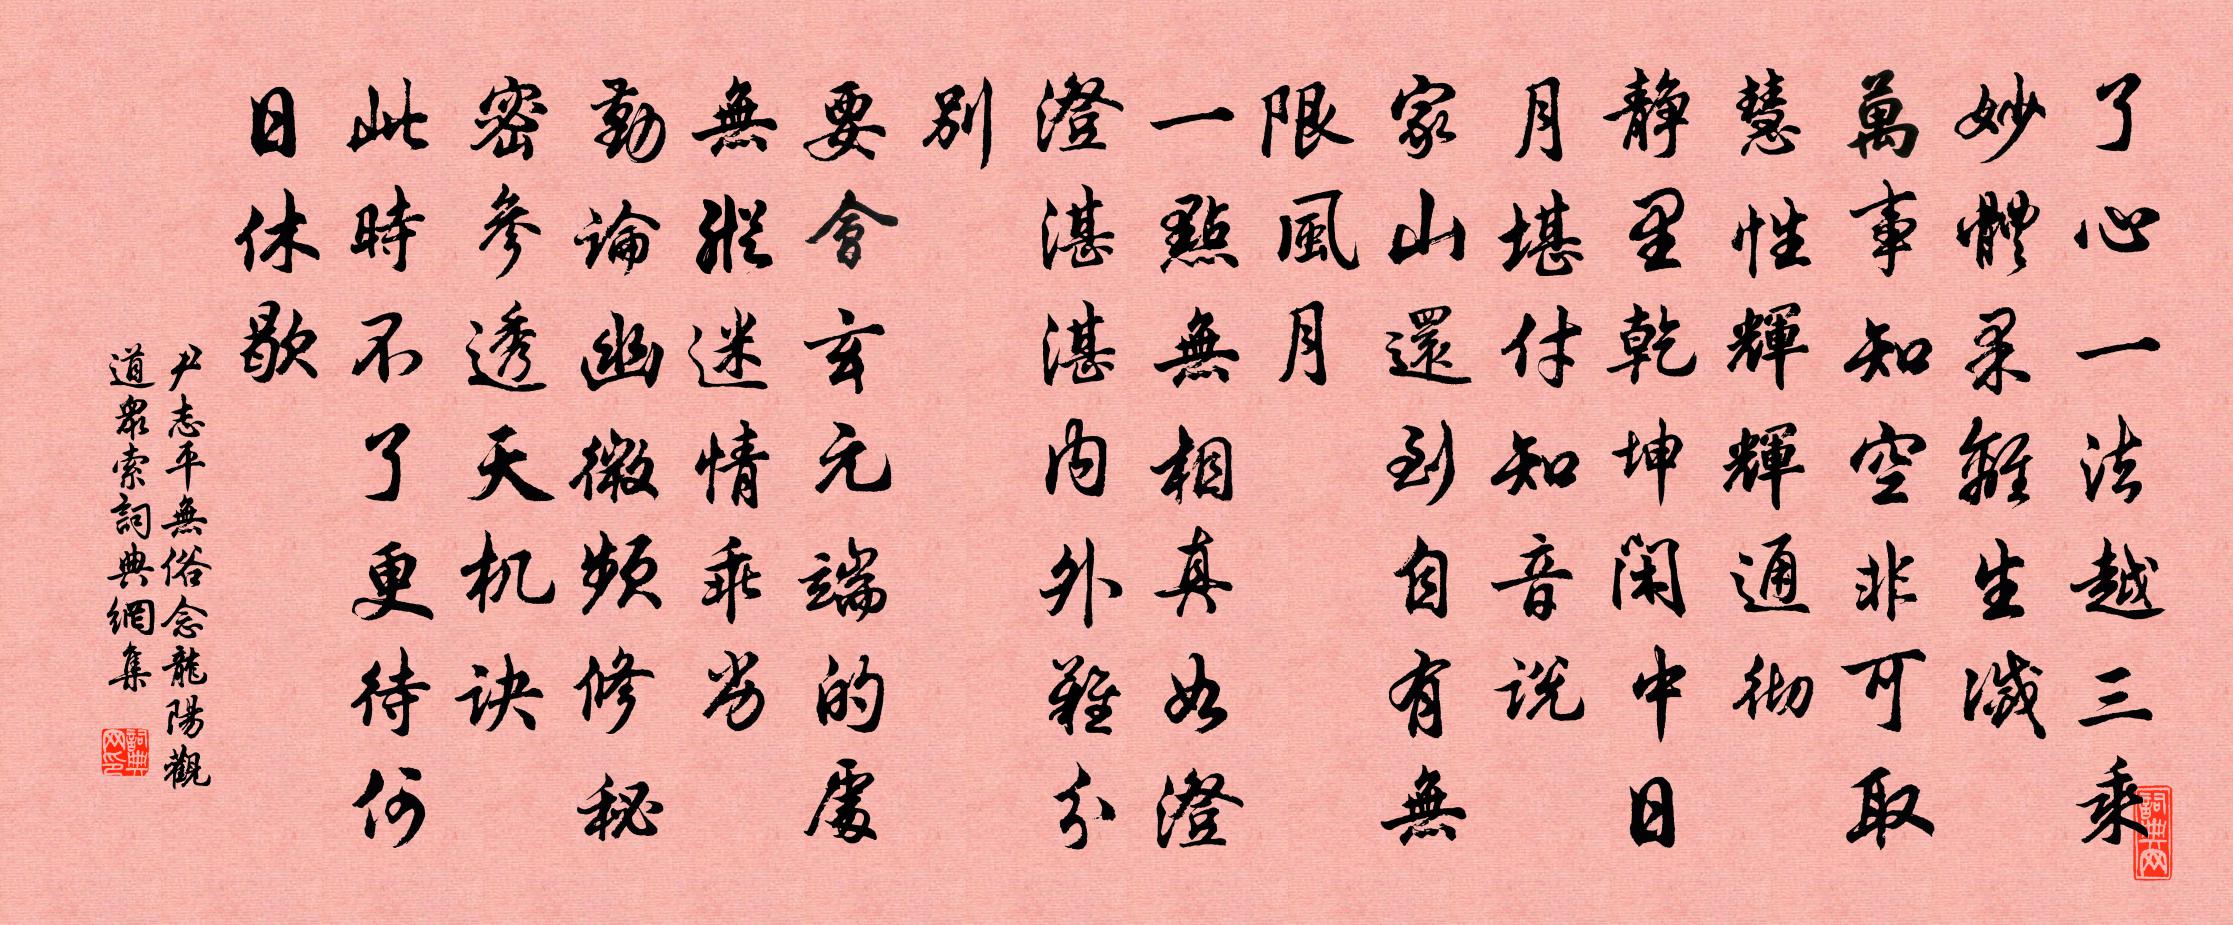 了心一法越三乘
妙體果離生滅
萬事知空非可取
慧性輝輝通彻
靜里乾坤閑中日
月堪付知音说
家山還到自有無
限風月
一點無相真如澄
澄湛湛内外難分
别
要會玄元端的處
無縱迷情乖劣
勤論幽微頻修秘
密參透天机诀
此時不了更待何
日休歇
尹志平無俗念龍陽觀
道眾索詞典網集
詞典网印
詞典网